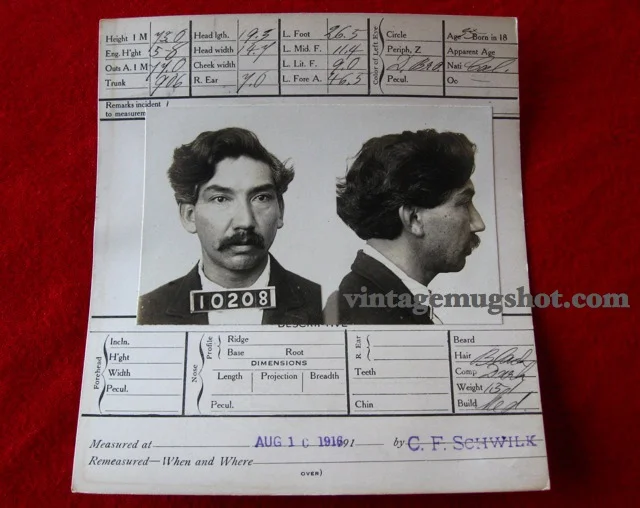 Height 1 M 73.0 Head lgth. 19.3 L. Foot 26.5 Circle Age Born in 18
Eng. H'ght 5-8 Head width L. Mid. F. 11.4 Color of Left Eye Periph, Z Apparent Age
Outs A. 1 M Cheek width L. Lit. F. 9.0 Nati Cal.
Trunk 90.6 R. Ear 7.0 L. Fore A. 46.3 Pecul. Oc
Remarks incident
to measurem
10208
vintagemugshot.com
DESCRIPTIVE
Forehead Incln. Nose Profile Ridge R. Ear Beard
H'ght Base Root Hair Black
Width DIMENSIONS Teeth Comp
Length Projection Breadth Weight
Pecul. Pecul. Chin Build Med
Measured at AUG 1 191 by C. F. SCHWILK
Remeasured—When and Where
OVER)